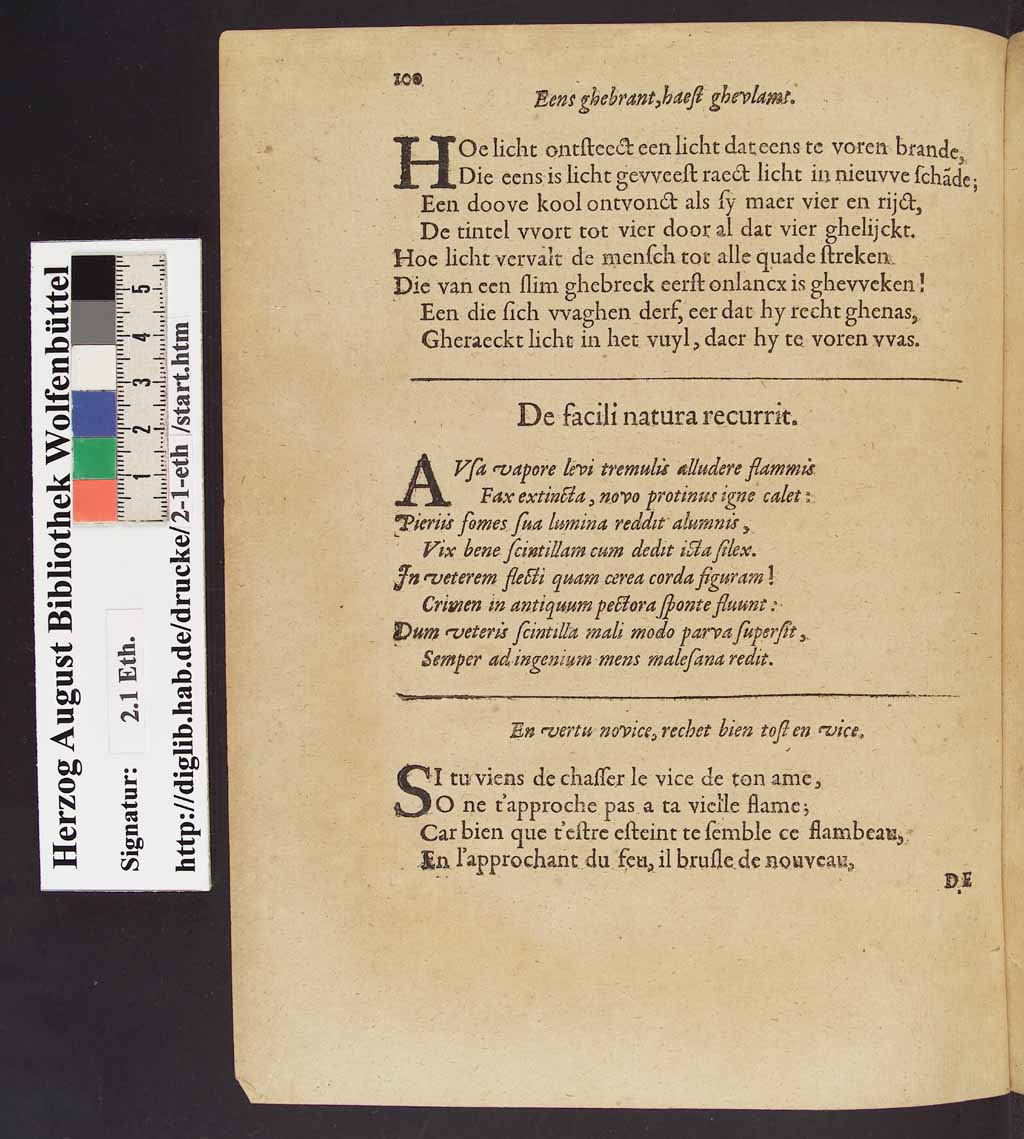 100
Eens ghebrant, haeſt ghevlamt.
HOe licht ontſteeckt een licht dat eens te voren brande,
Die eens is licht gevveeſt raect licht in nieuvve ſchãde;
Een doove kool ontvonct als ſy maer vier en rijct,
De tintel vvort tot vier door al dat vier ghelijckt.
Hoe licht vervalt de menſch tot alle quade ſtreken
Die van een ſlim ghebreck eerſt onlancx is ghevveken!
Een die ſich vvaghen derf, eer dat hy recht ghenas,
Gheraeckt licht in het vuyl, daer hy te voren vvas.
De facili natura recurrit.
AVſa vapore levi tremulis alludere flammis
Fax extincta, novo protinus igne calet:
Pieriis fomes ſua lumina reddit alumnis,
Vix bene ſcintillam cum dedit icta ſilex.
In veterem flecti quam cerea corda figuram!
Crimen in antiquum pectora ſponte fluunt:
Dum veteris ſcintilla mali modo parva ſuperſit,
Semper ad ingenium mens maleſana redit.
En vertu novice, rechet bien toſt en vice.
SI tu viens de chaſſer le vice de ton ame,
O ne t'approche pas a ta vieille flame;
Car bien que t'eſtre eſteint te ſemble ce flambeau,
En l'approchant du feu, il bruſle de nouveau,
DE
Herzog August Bibliothek Wolfenbüttel
Signatur: 2.1 Eth.
http://diglib.hab.de/drucke/2-1-eth /start.htm
1 2 3 4 5